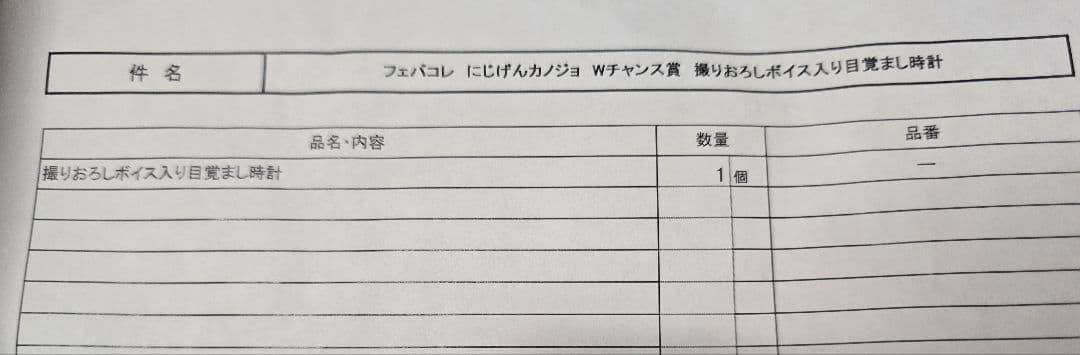 件 名 フェバコレ にじげんカノジョ Wチャンス賞 撮りおろしボイス入り目覚まし時計
品名・内容 数量 品番
撮りおろしボイス入り目覚まし時計 1 個 ―